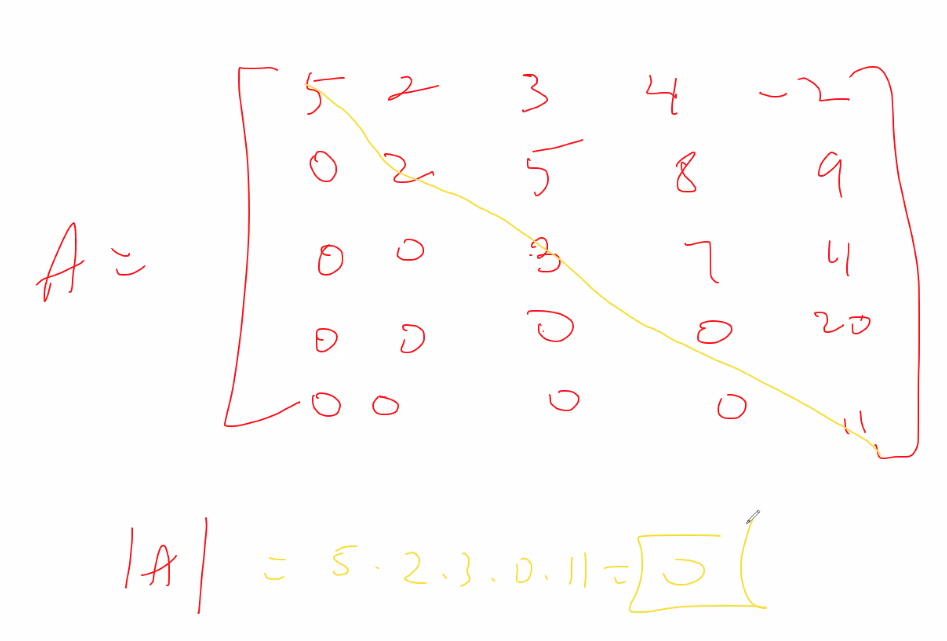 5 2 3 4 -2
0 2 5 8 9
A = 0 0 3 7 11
0 0 0 0 20
0 0 0 0 11
|A| = 5 · 2 · 3 · 0 · 11 = 0